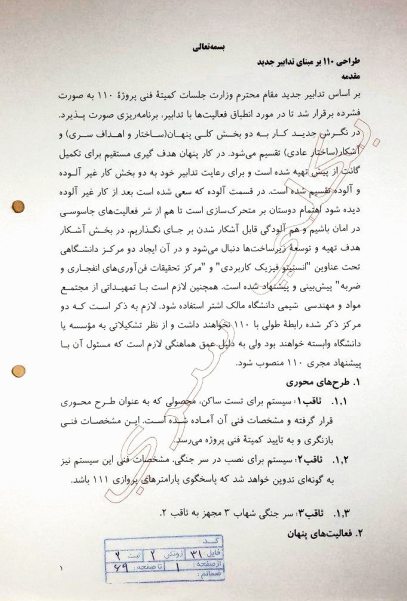 بسمه‌تعالی
طراحی ۱۱۰ بر مبنای تدابیر جدید
مقدمه
بر اساس تدابیر جدید مقام محترم وزارت جلسات کمیتهٔ فنی پروژهٔ ۱۱۰ به صورت
فشرده برقرار شد تا در مورد انطباق فعالیت‌ها با تدابیر، برنامه‌ریزی صورت پذیرد.
در نگرش جدید کار به دو بخش کلی پنهان(ساختار و اهداف سری) و
آشکار(ساختار عادی) تقسیم می‌شود. در کار پنهان هدف گیری مستقیم برای تکمیل
گانت از پیش تهیه شده است و برای رعایت تدابیر خود به دو بخش کار غیر آلوده
و آلوده تقسیم شده است. در قسمت آلوده که سعی شده است بعد از کار غیر آلوده
دیده شود اهتمام دوستان بر متحرک‌سازی است تا هم از شر فعالیت‌های جاسوسی
در امان باشیم و هم آلودگی قابل آشکار شدن بر جای نگذاریم. در بخش آشکار
هدف تهیه و توسعهٔ زیرساخت‌ها دنبال می‌شود و در آن ایجاد دو مرکز دانشگاهی
تحت عناوین "انستیتو فیزیک کاربردی" و "مرکز تحقیقات فن‌آوری‌های انفجاری و
ضربه" پیش‌بینی و پیشنهاد شده است. همچنین لازم است با تمهیداتی از مجتمع
مواد و مهندسی شیمی دانشگاه مالک اشتر استفاده شود. لازم به ذکر است که دو
مرکز ذکر شده رابطهٔ طولی با ۱۱۰ نخواهند داشت و از نظر تشکیلاتی به مؤسسه یا
دانشگاه وابسته خواهند بود ولی به دلیل عمق هماهنگی لازم است که مسئول آن با
پیشنهاد مجری ۱۱۰ منصوب شود.
۱. طرح‌های محوری
۱.۱. ثاقب۱: سیستم برای تست ساکن، محصولی که به عنوان طرح محوری
قرار گرفته و مشخصات فنی آن آماده شده است. این مشخصات فنی
بازنگری و به تایید کمیتهٔ فنی پروژه می‌رسد.
۱.۲. ثاقب۲: سیستم برای نصب در سر جنگی. مشخصات فنی این سیستم نیز
به گونه‌ای تدوین خواهد شد که پاسخگوی پارامترهای پروازی ۱۱۱ باشد.
۱.۳. ثاقب۳: سر جنگی شهاب ۳ مجهز به ثاقب ۲.
۲. فعالیت‌های پنهان
کد
فایل ۳۱ زونکن ۲ ست ۲
از صفحه: ۱ تا صفحه: ۶۹
ضمائم:
۱